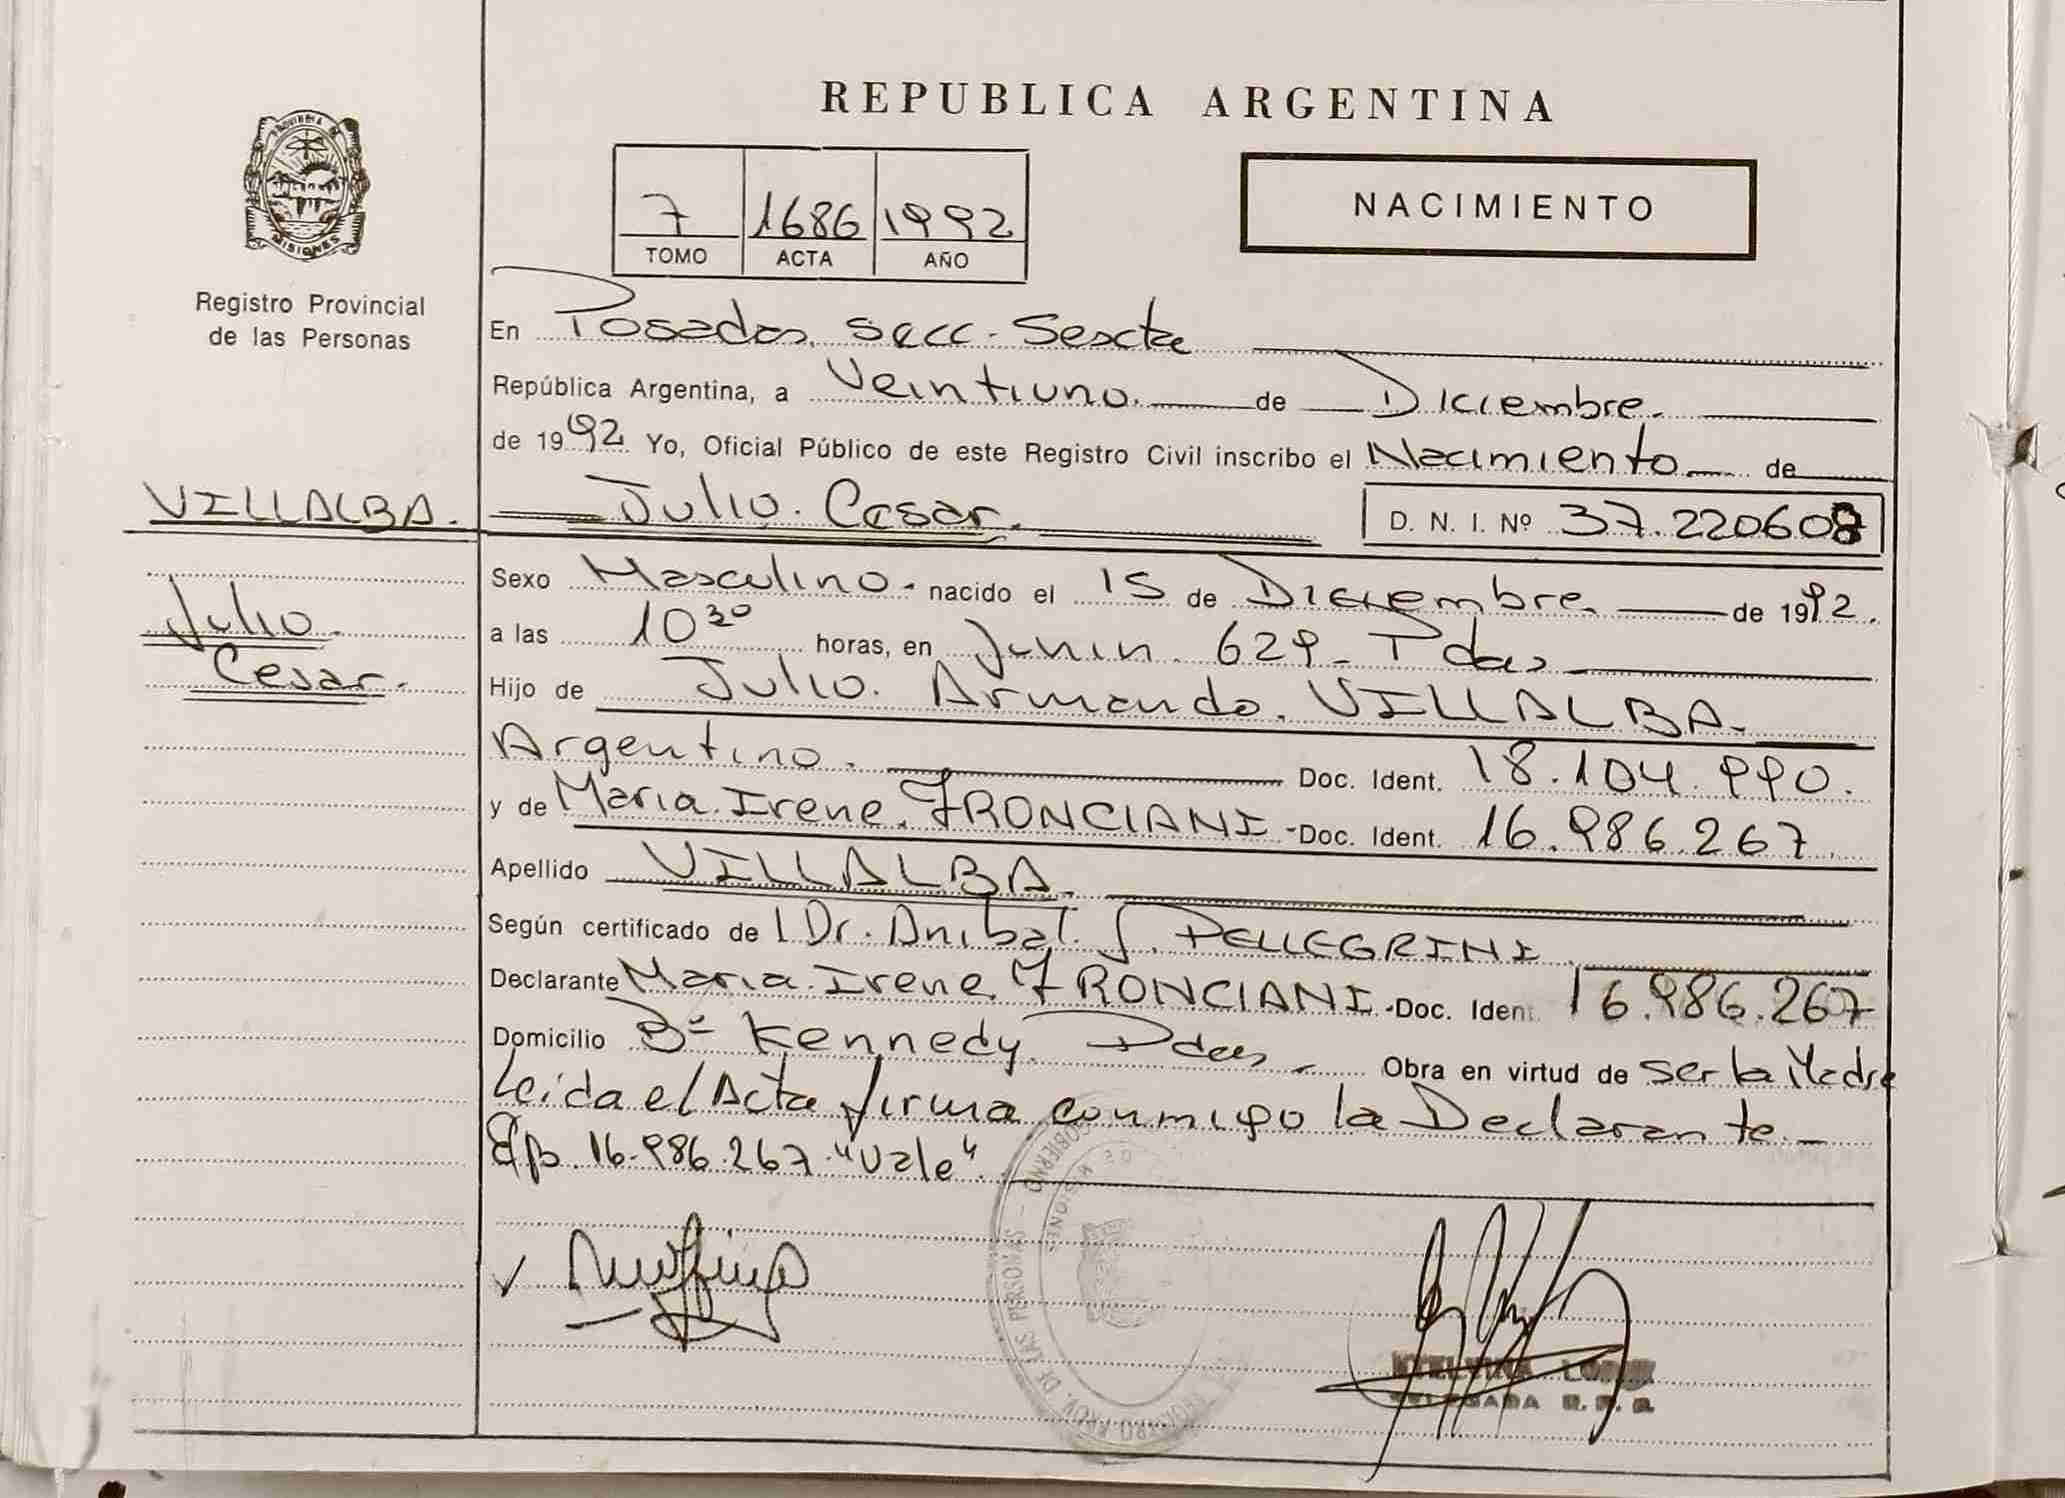 REPUBLICA ARGENTINA
PROVINCIA DE
MISIONES
Registro Provincial
de las Personas
7 1686 1992
TOMO ACTA AÑO
NACIMIENTO
En Posadas, Secc. Sexta
República Argentina, a Veintiuno. de Diciembre.
de 1992 Yo, Oficial Público de este Registro Civil inscribo el Nacimiento de
VILLALBA. Julio. Cesar. D. N. I. Nº 37.220608
Julio.
Cesar.
Sexo Masculino. nacido el 15 de Diciembre. de 1992.
a las 10 30 horas, en Junin. 629_ Pdas
Hijo de Julio. Armando. VILLALBA.
Argentino. Doc. Ident. 18.104.990.
y de Maria Irene. FRONCIANI - Doc. Ident. 16.986.267.
Apellido VILLALBA.
Según certificado de l Dr. Anibal. J. PELLEGRINI.
Declarante Maria Irene FRONCIANI - Doc. Ident. 16.986.267
Domicilio Bº Kennedy Pdas Obra en virtud de ser la Madre
Leida el Acta firma conmigo la Declarante.-
16.986.267. "Vale".
GOBIERNO - DE LAS PERSONAS
DE MISIONES
DELEGADA R. P. P.